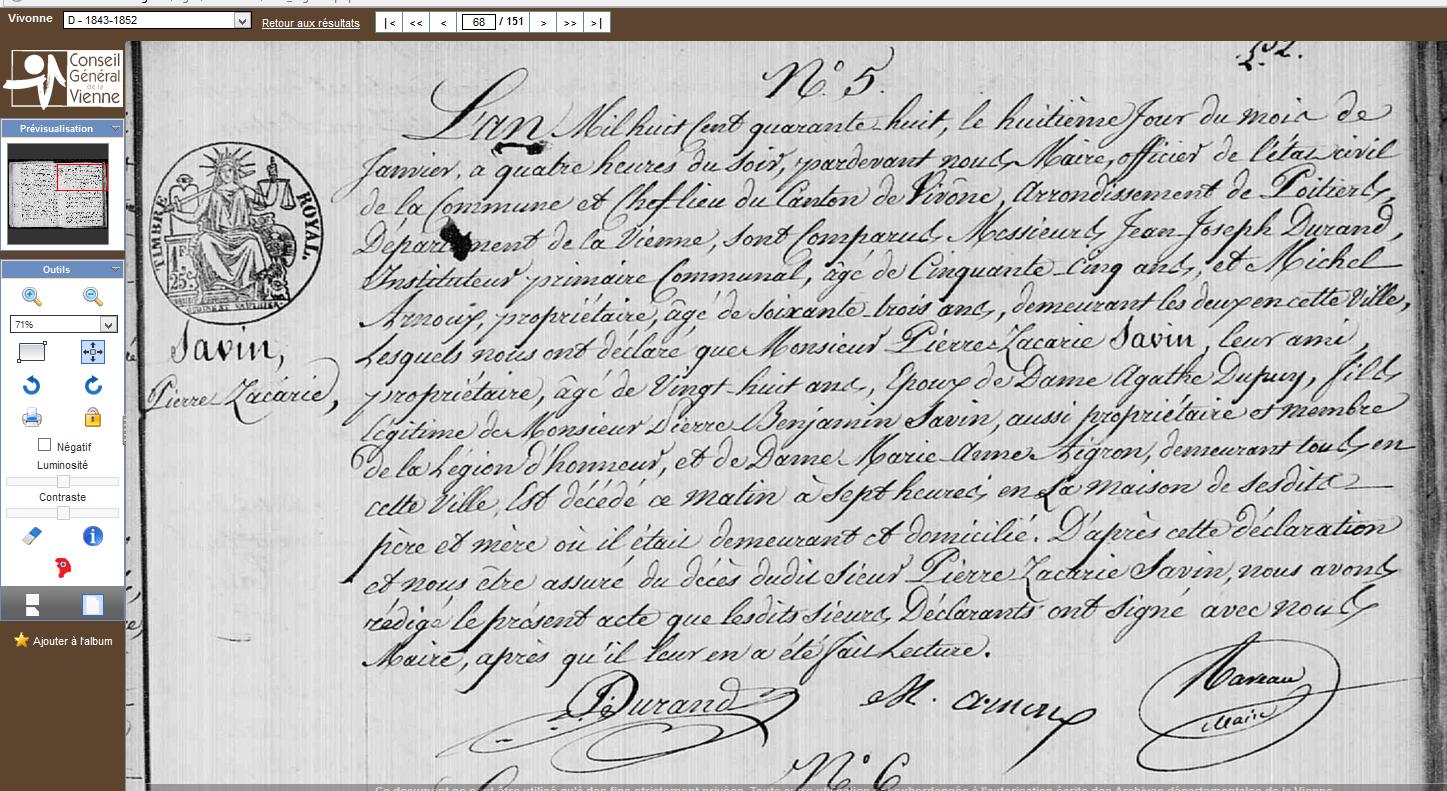 Vivonne
D - 1843-1852
Retour aux résultats
|<
<<
<
68
/ 151
>
>>
>|
Conseil
Général
de la
Vienne
Prévisualisation
Outils
71%
Négatif
Luminosité
Contraste
Ajouter à l'album
TIMBRE ROYAL.
25c
Savin,
Pierre Zacárie,
N.° 5.
L'an Mil huit Cent quarante-huit, le huitième Jour du mois de
Janvier, a quatre heures du soir, pardevant nous, Maire, officier de l'état civil
de la Commune et Chef-lieu du Canton de Vivône, Arrondissement de Poitiers,
Département de la Vienne, sont Comparus Messieurs Jean Joseph Durand,
Instituteur primaire Communal, âgé de Cinquante-cinq ans, et Michel
Arnoux, propriétaire, âgé de soixante-trois ans, demeurant les deux en cette Ville,
Lesquels nous ont déclaré que Monsieur Pierre Zacarie Savin, leur ami,
propriétaire, âgé de Vingt-huit ans, Epoux de Dame Agathe Dupuy, fils
légitime de Monsieur Pierre Benjamin Savin, aussi propriétaire et membre
de la Légion d'honneur, et de Dame Marie Anne Tigron, demeurant tous en
cette Ville, Est décédé ce matin à sept heures, en La maison de sesdits
père et mère où il était demeurant et domicilié. D'après cette déclaration
et nous être assuré du décès dudit Sieur Pierre Zacarie Savin, nous avons
rédigé le présent acte que lesdits sieurs Déclarants ont signé avec nous
Maire, après qu'il leur en a été fait Lecture.
Durand
M. arnoux
Maire
N.° 6